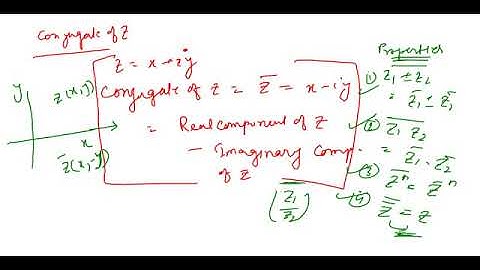 Conjugate of Z
Z = x + iy
Conjugate of z = z̅ = x - iy
= Real component of Z
- Imaginary Comp.
of Z
y
Z(x,y)
x
z̅(x,-y)
Properties
① Z₁ ± Z₂
= z̅₁ ± z̅₁
② \overline{Z₁ Z₂}
= z̅₁ . z̅₂
③ \overline{zⁿ} = z̅ⁿ
\overline{(Z₁/Z₂)}
④ \overline{z̅} = z